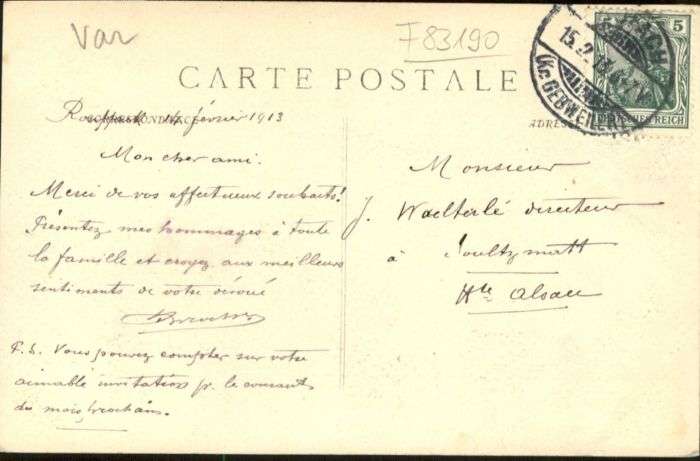 Var
F83190
5 5
DEUTSCHES REICH
15.2.13
(Kr. GEBWEILER)
CARTE POSTALE
CORRESPONDANCE
ADRESSE
14 février 1913
Mon cher ami.
Merci de vos affectueux souhaits!
Présentez mes hommages à toute
la famille et croyez aux meilleurs
sentiments de votre dévoué
P.S. Vous pouvez compter sur votre
aimable invitation p. le courant
du mois prochain.
Monsieur
J. Waelterlé directeur
à Soultzmatt
Hte Alsace